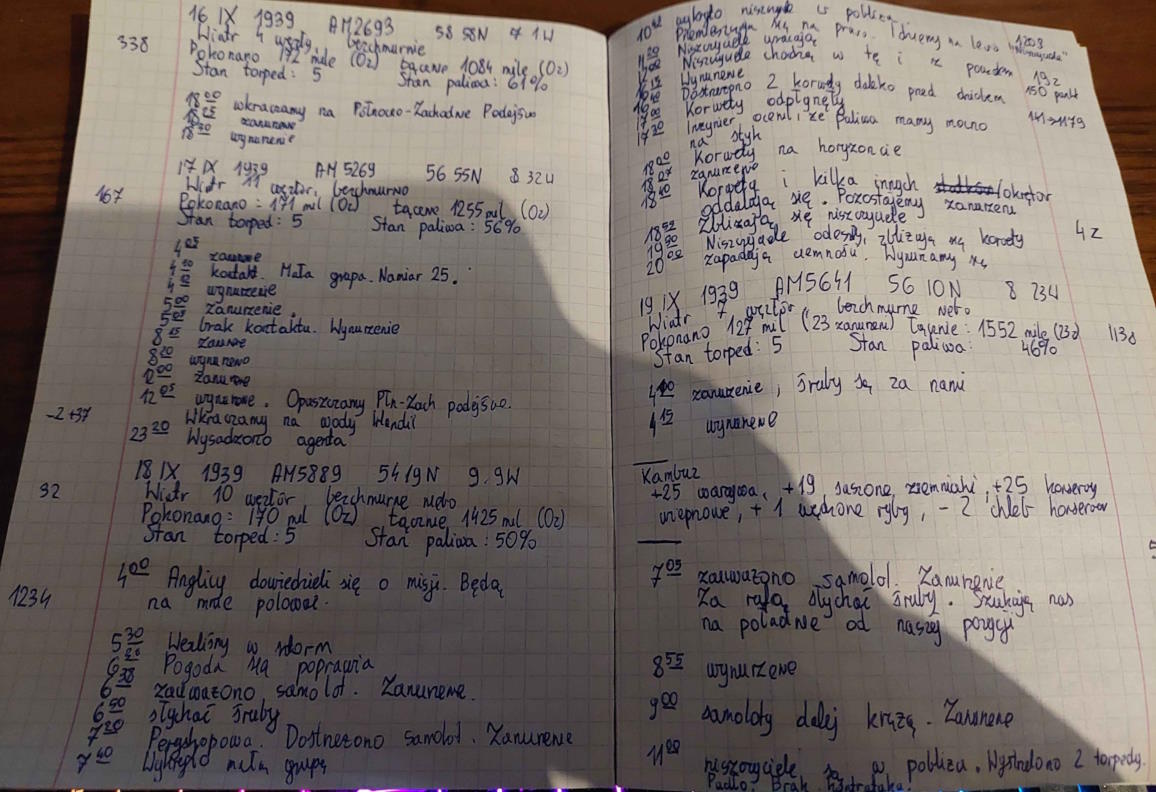 16 IX 1939 AM2693 58 58N 7 1W
338
Wiatr 4 węzły, bezchmurnie
Pokonano 172 mile (Oz) Łącznie 1084 mile (Oz)
Stan torped: 5 Stan paliwa: 61%
18 00 wkraczamy na Północno-Zachodnie Podejście
18 25 zanurzenie
18 30 wynurzenie
17 IX 1939 AM 5269 56 55N 8 32W
167
Wiatr 11 węzłów, bezchmurno
Pokonano: 171 mil (Oz) Łącznie 1255 mil (Oz)
Stan torped: 5 Stan paliwa: 56%
zanurzenie
kontakt. Mała grupa. Namiar 25.
wynurzenie
5 00 zanurzenie.
brak kontaktu. Wynurzenie
8 15 zanurzenie
8 20 wynurzenie
12 00 zanurzenie
12 05 wynurzenie. Opuszczamy Płn-Zach podejście.
-2 +37
Wkraczamy na wody
23 20 Wysadzono agenta
18 IX 1939 AM5889 54 19N 9.9W
92
Wiatr 10 węzłów bezchmurne niebo
Pokonano: 170 mil (Oz) Łącznie 1425 mil (Oz)
Stan torped: 5 Stan paliwa: 50%
4 00 Anglicy dowiedzieli się o misji. Będą
na mnie polować.
1234
5 30 Weszliśmy w sztorm
Pogoda się poprawia
6 38 zauważono samolot. Zanurzenie.
6 50 słychać śruby
7 20 Peryskopowa. Dostrzeżono samolot. Zanurzenie
7 40 Wykryto małą grupę
wykryto niszczyciele w pobliżu
Przemieszczają się na prawo. Idziemy na lewo
1203
Niszczyciele wracają
Niszczyciele chodzą w tę i z powrotem
192
Wynurzenie
150 punkt
Dostrzeżono 2 korwety daleko przed dziobem
17 00 Korwety odpłynęły
17 30 Inżynier ocenił, że paliwa mamy mocno
na styk
18 00 Korwety na horyzoncie
18 07 zanurzenie
18 40 Korwety i kilka innych okrętów
oddalają się. Pozostajemy zanurzeni
18 52 Zbliżają się niszczyciele
Niszczyciele odeszły, zbliżają się korwety
4z
20 00 Zapadają ciemności. Wynurzamy się
19 IX 1939 AM5641 56 10N 8 23W
Wiatr 7 węzłów, bezchmurne niebo
Pokonano 127 mil (23 zanurzeni) Łącznie: 1552 mile (23z)
1138
Stan torped: 5 Stan paliwa: 46%
4 00 zanurzenie, śruby są za nami
4 15 wynurzenie
Kambuz
+25 warzywa, +19 suszone ziemniaki, +25 konserwy
wieprzowe, +1 wędzone ryby, -2 chleb konserwow
7 05 zauważono samolot. Zanurzenie
Za rufą słychać śruby. Szukają nas
na południe od naszej pozycji
8 55 wynurzenie
9 00 samoloty dalej krążą. Zanurzenie
11 00 niszczyciele są w pobliżu. Wystrzelono 2 torpedy.
Pudło. Brak